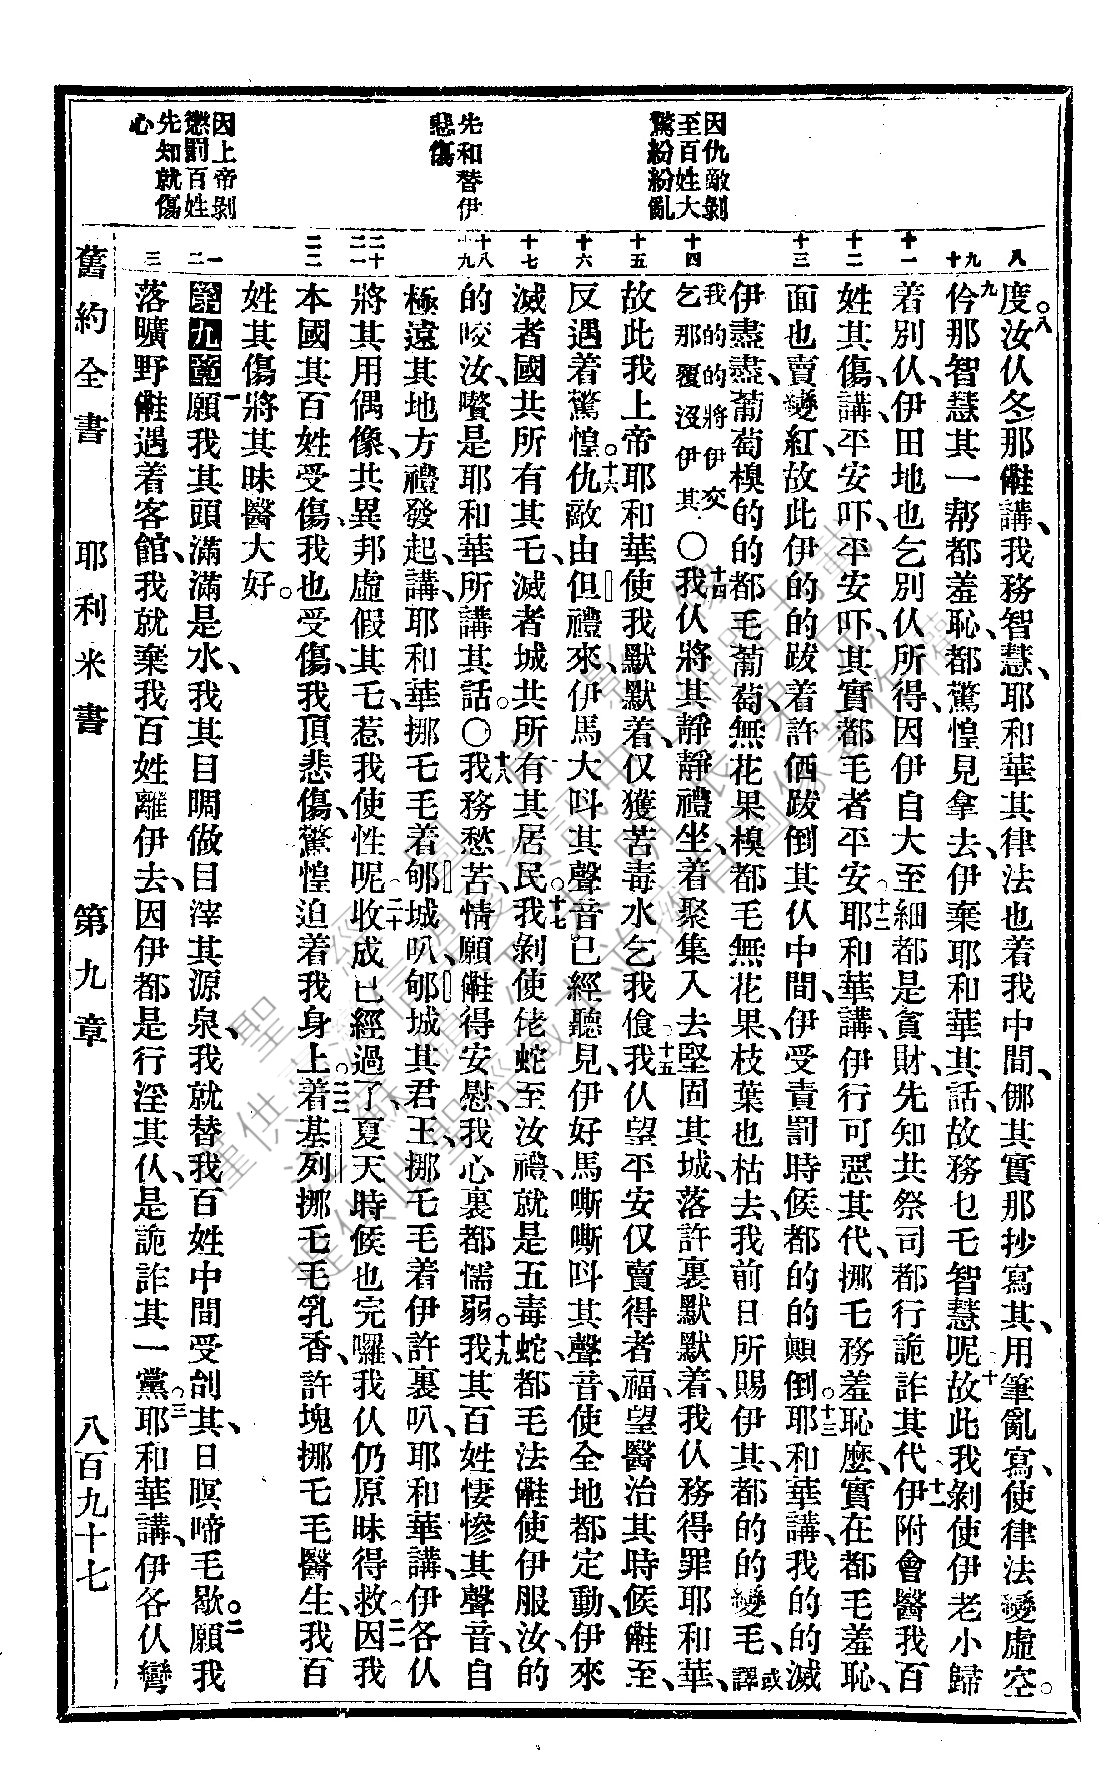 因仇敵剝
至百姓大
驚紛紛亂
先和替伊
悲傷
因上帝剝
懲罰百姓
先知就傷
心
八
九
十
十一
十二
十三
十四
十五
十六
十七
十八
十九
二十
二一
二二
一
二
三
度汝仈冬那雝講、我務智慧、耶和華其律法也着我中間、倻其實那抄寫其、用筆亂寫、使律法變虛空。
仱那智慧其一帮都羞恥、都驚惶見拿去、伊棄耶和華其話、故務乜毛智慧呢、故此我剝使伊老小歸
着別仈、伊田地也乞別仈所得、因伊自大至細都是貪財、先知共祭司都行詭詐其代、伊附會醫我百
姓其傷、講、平安吓、平安吓、其實都毛者平安。耶和華講、伊行可惡其代、挪毛務羞恥麽、實在都毛羞恥、
面也賣變紅、故此伊的的跋着許價跋倒其仈中間、伊受責罰時候、都的的顚倒。耶和華講、我的的滅
伊盡盡、葡萄模的的都毛葡萄、無花果模都毛無花果、枝葉也枯去、我前日所賜伊其、都的的變毛、或譯
我的的將伊交
乞那覆沒伊其 〇我仈將其靜靜禮坐、着聚集入去堅固其城、落許裏默默着、我仈務得罪耶和華、
故此我上帝耶和華使我默默着、仅獲苦毒水乞我飡、我仈望平安、仅賣得者福、望醫治其時候、雝至、
反遇着驚惶。仇敵由但禮來、伊馬大呌其聲音已經聽見、伊好馬嘶嘶呌其聲音、使全地都定動、伊來
滅者國共所有其毛、滅者城共所有其居民。我剝使佬蛇至汝禮、就是五毒蛇、都毛法雝使伊服汝、的
的咬汝、嚽是耶和華所講其話。〇我務愁苦、情願雝得安慰、我心裏都懦弱。我其百姓悽慘其聲音、自
極遠其地方禮發起、講、耶和華挪毛毛着郇城叭、郇城其君王、挪毛毛着伊許裏叭、耶和華講、伊各仈
將其用偶像、共異邦虛假其毛惹我使性呢。收成已經過了、夏天時候也完囉、我仈仍原昧得救、因我
本國其百姓受傷、我也受傷、我頂悲傷、驚惶迫着我身上。着基列挪毛毛乳香、許塊挪毛毛醫生、我百
姓其傷將其昧醫大好。
第九章願我其頭滿滿是水、我其目睭做目滓其源泉、我就替我百姓中間受刣其、日暝啼毛歇。願我
落曠野雝遇着客館、我就棄我百姓離伊去、因伊都是行淫其仈、是詭詐其一黨。耶和華講、伊各仈彎
舊約全書 耶利米書 第九章 八百九十七